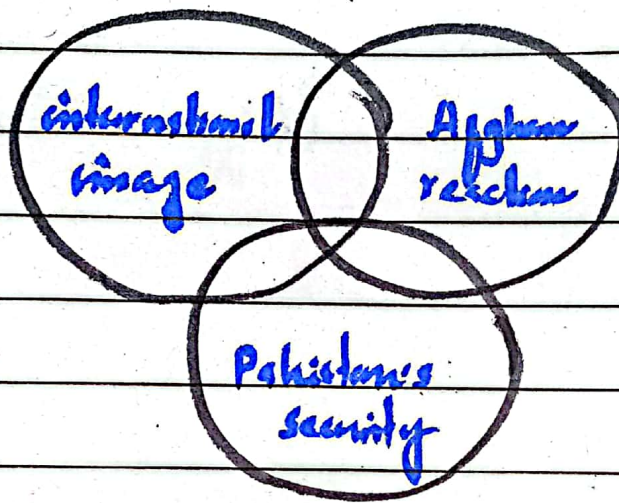 international
image
Afghan
reaction
Pakistan's
security